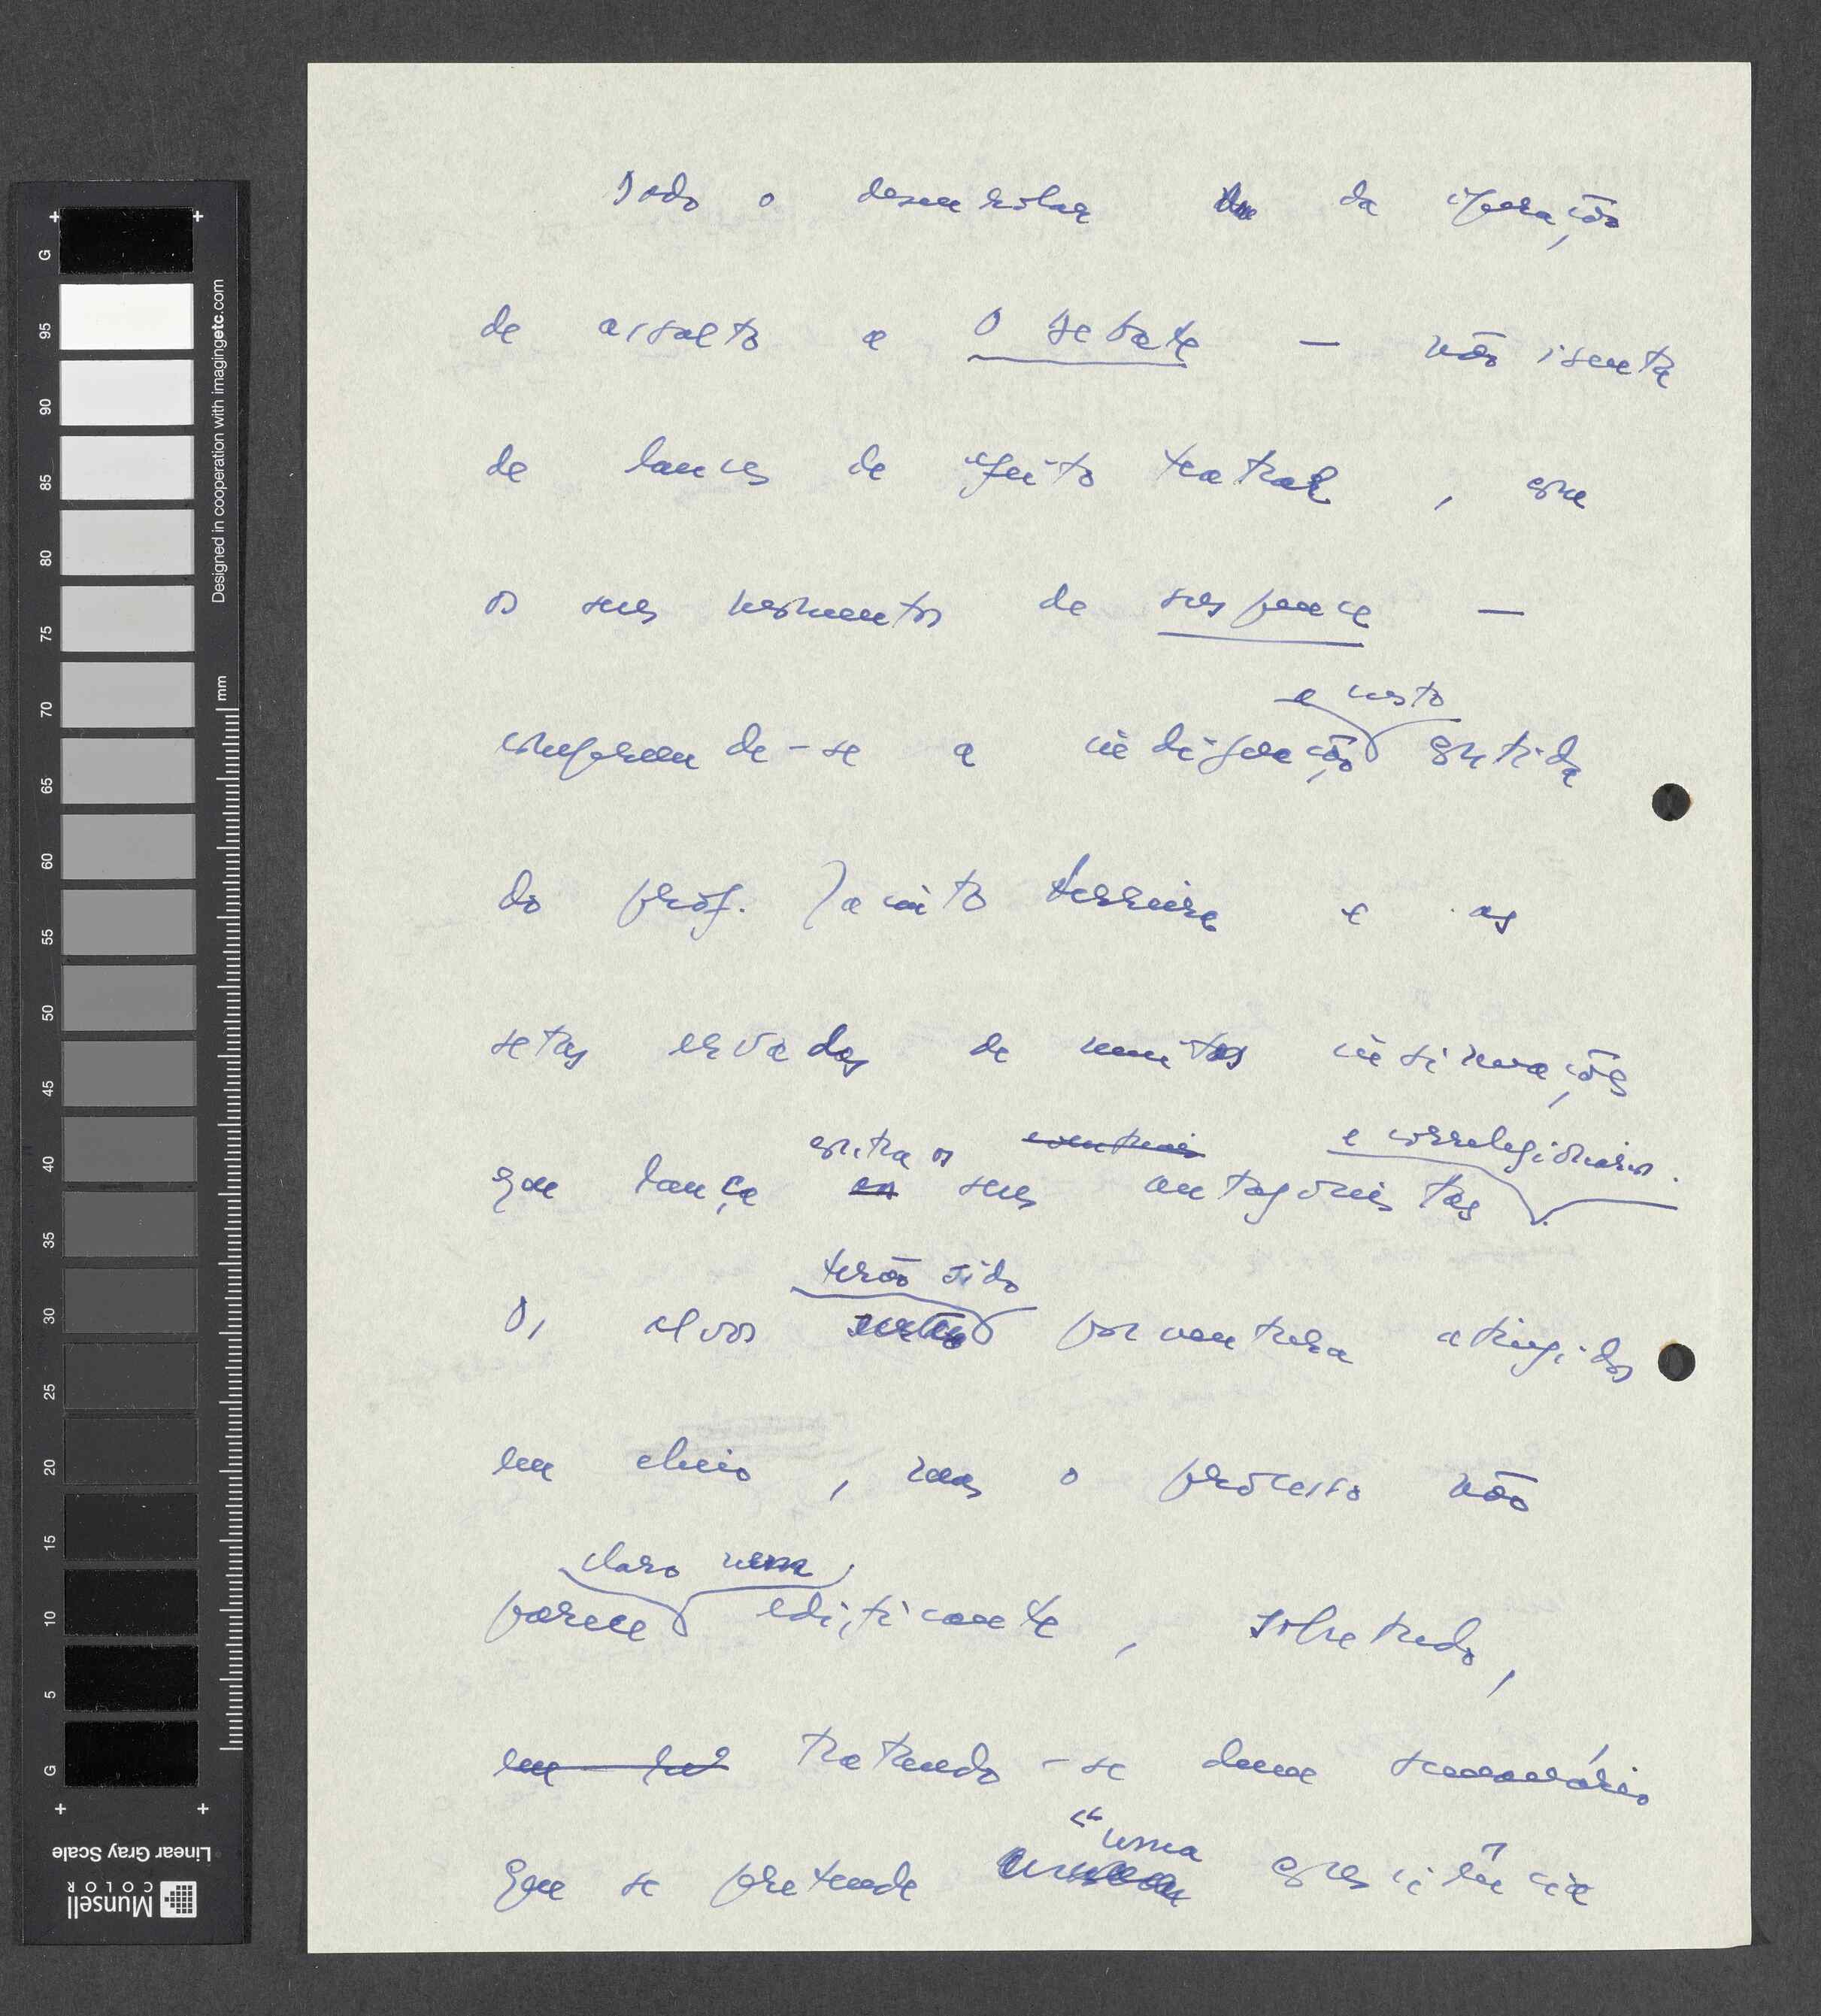 Todo o desenrolar da operação
de assalto a O Debate — não isenta
de lances de efeito teatral, com
os seus momentos de suspence —
e custo
compreende-se a indignação contida
do prof. Jacinto Ferreira e as
setas ervadas de muitas insinuações
contra os eventuais e correlegionários.
que lança seus antagonistas
terão sido
Os alvos porventura atingidos
em cheio, mas o processo não
claro nem
parece edificante, sobretudo,
em tratando-se dum semanário
"uma
que se pretende consciência
G 95 90 85 80 75 70 65 60 55 50 45 40 35 30 25 20 15 10 5 G
Designed in cooperation with imagingetc.com
mm
Linear Gray Scale
Munsell
COLOR